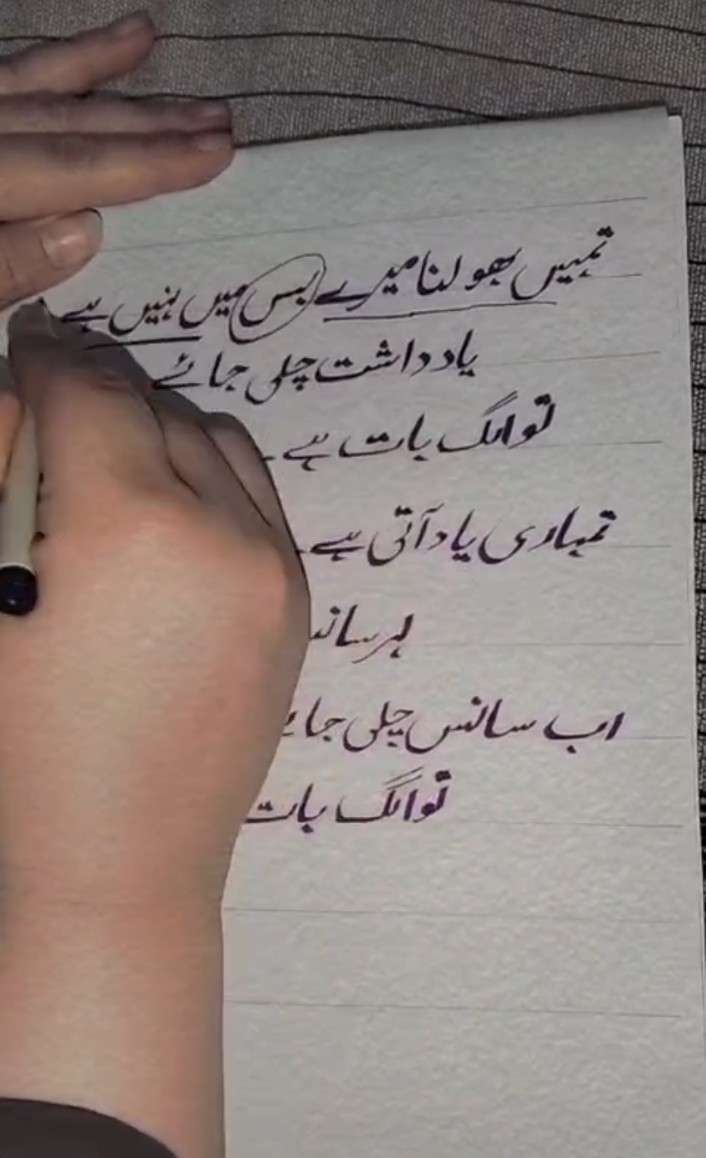 تمہیں بھولنا میرے بس میں نہیں ہے
یادداشت چلی جائے
تو الگ بات ہے۔
تمہاری یاد آتی ہے۔
ہر
اب سانس چلی
تو الگ بات